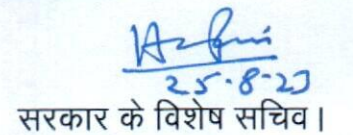 25.8.23
सरकार के विशेष सचिव।